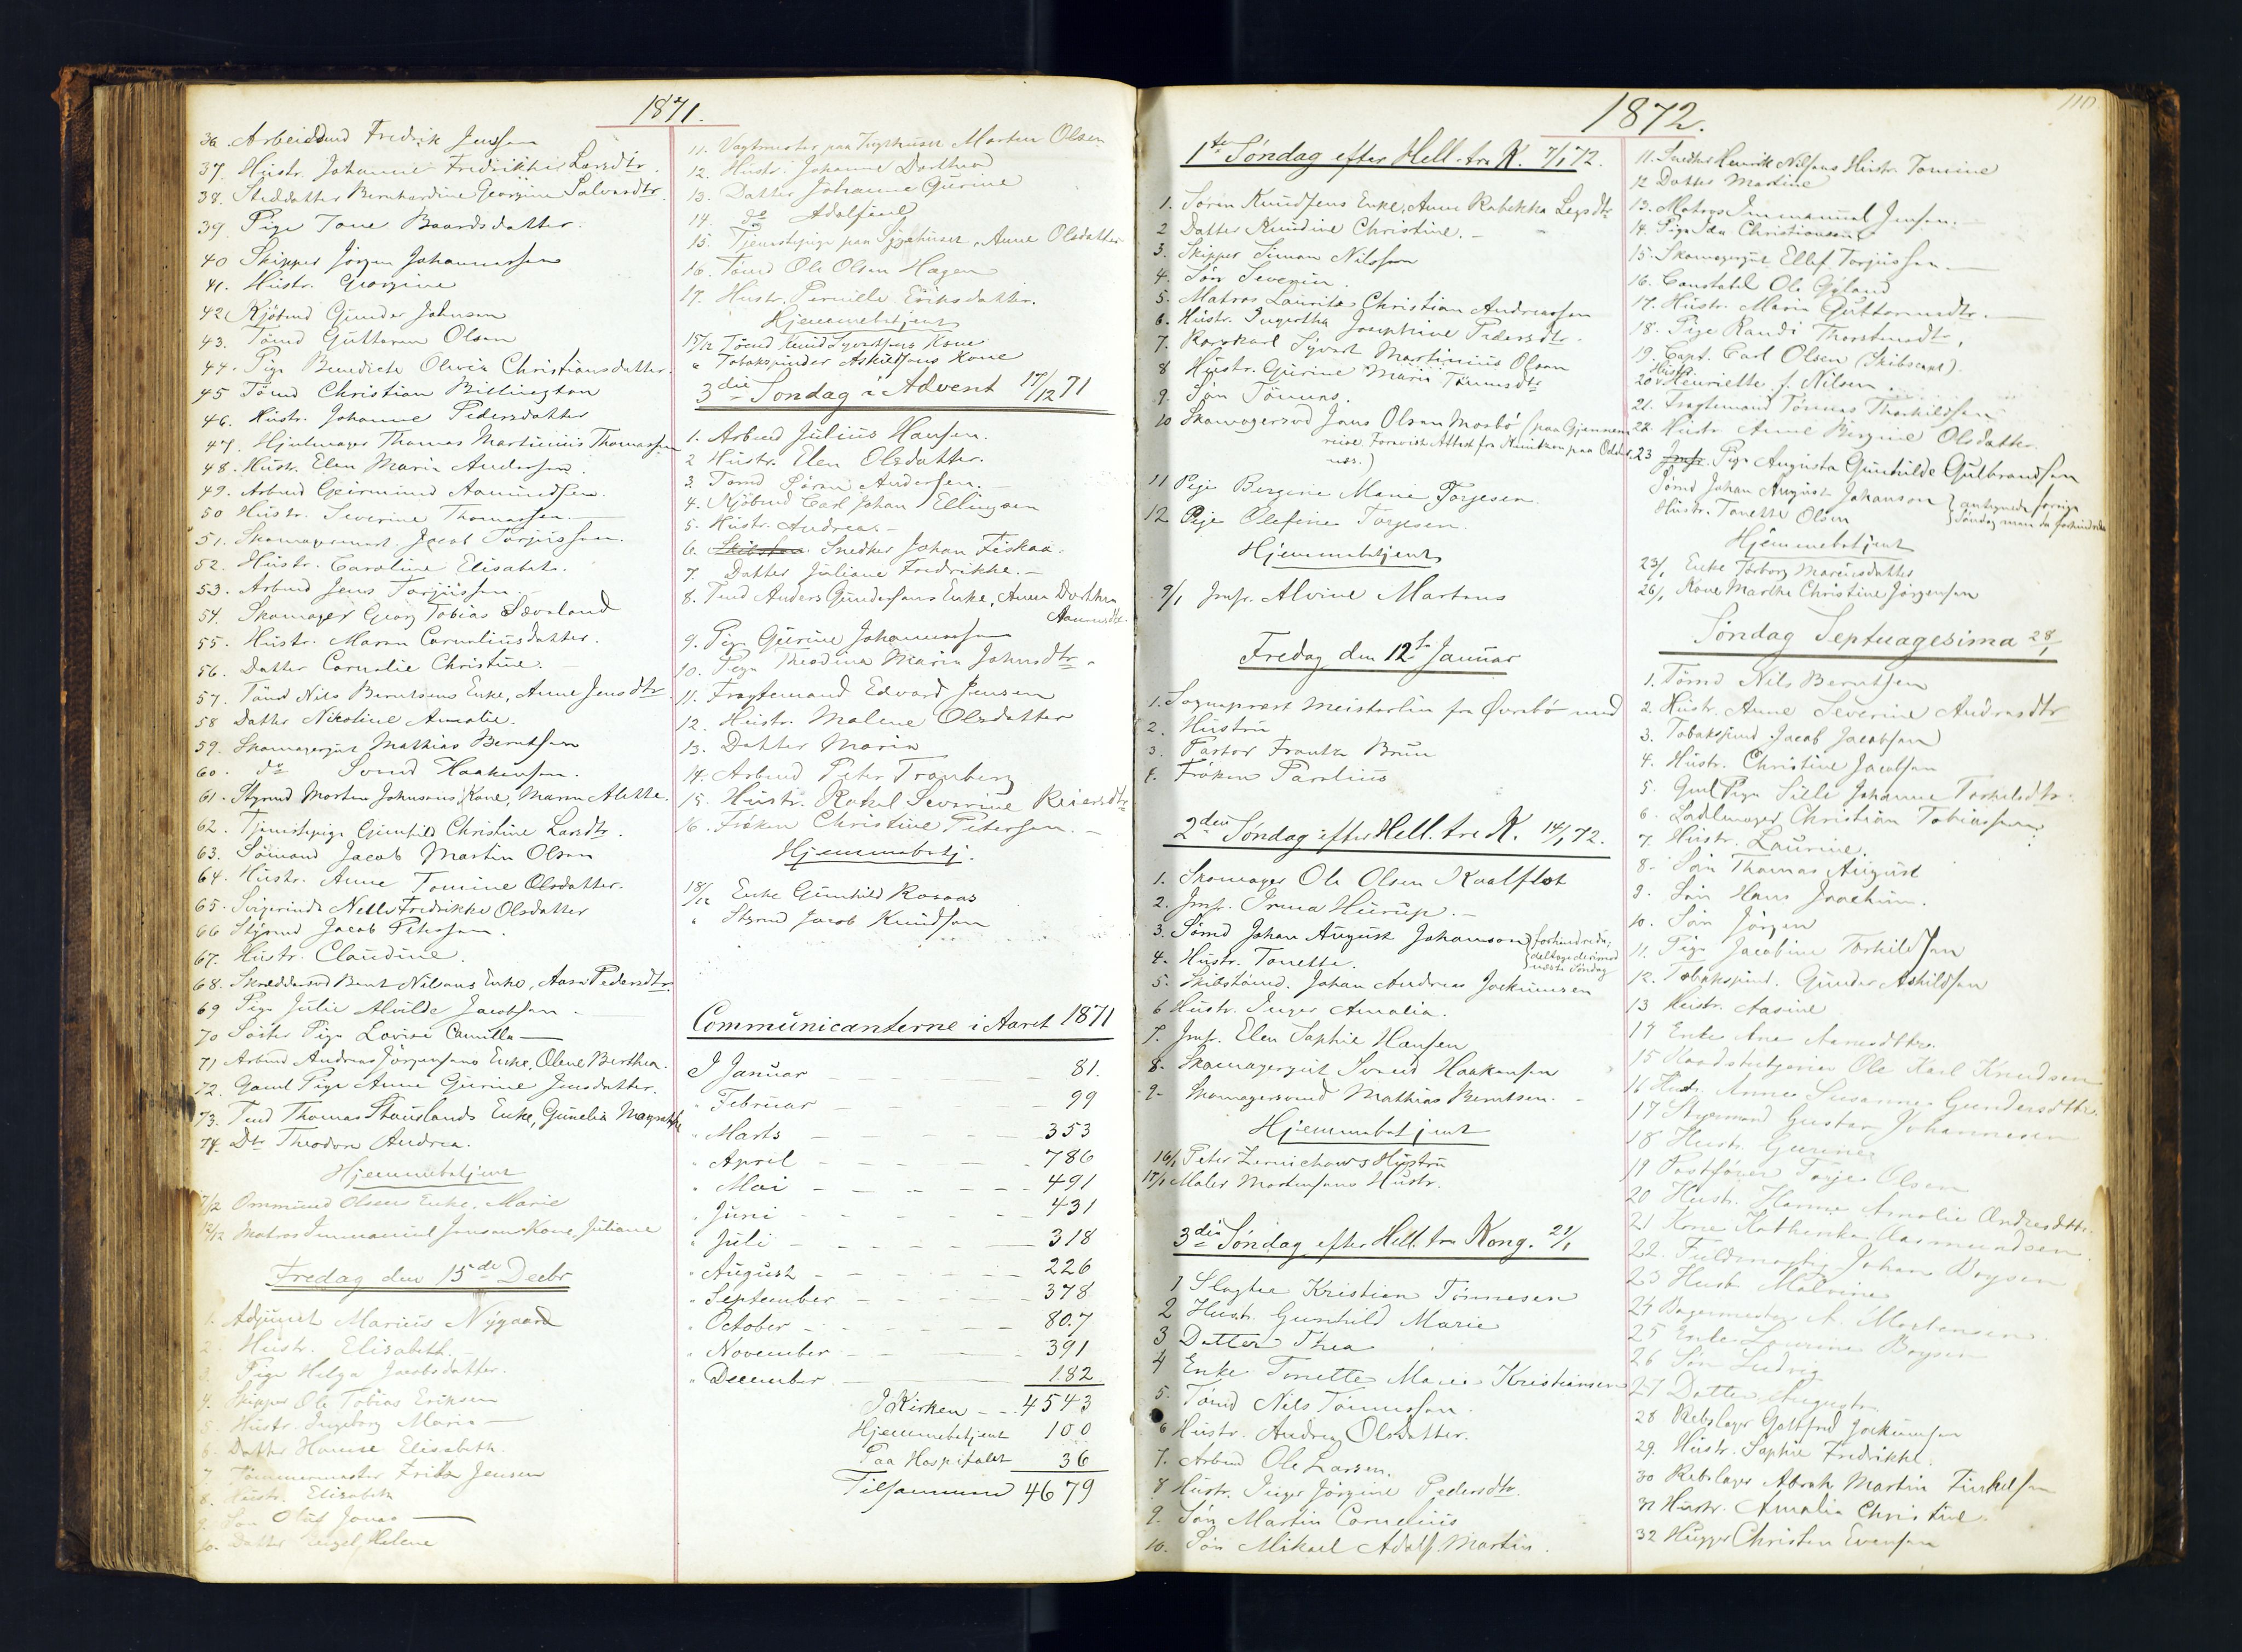 1871.
36. Arbeidsmd Fredrik Jenssen
37. Hustr. Johanne Fredrikke Larsdtr.
38. Steddatter Bernhardine Georgine Salvesdtr.
39. Pige Tone Baardsdatter.
40 Skipper Jörgen Johannessen
41. Hustr. Georgine
42 Kjöbmd Gunder Johnsen
43. Tömd Guttorm Olsen
44. Pige Benedicte Olivia Christiansdatter.
45 Tömd Christian Billington
46. Hustr. Johanne Pedersdatter
47. Hjulmager Thomas Martinius Thomassen
48. Hustr. Elen Maria Andersen.
49. Arbmd Geirmund Aamundsen.
50 Hustr. Severine Thomassen.
51. Skomagermest. Jacob Torjussen.
52. Hustr. Caroline Elisabet.
53. Arbmd Jens Torjussen
54. Skomager Georg Tobias Sævesland
55. Hustr. Maren Corneliusdatter.
56. Datter Cornelie Christine.
57. Tömd Nils Berntsens Enke, Anne Jensdtr
58 Datter Nikoline Amalie.
59. Skomagersvd Mathias Berntsen
60. do Svend Haakensen.
61. Styrmd Morten Johnsens Kone, Maren Alette.
62. Tjenestepige Gunhild Christine Larsdtr.
63. Sömand Jacob Martin Olsen
64. Hustr. Anne Tomine Olsdatter.
65. Svigerinde Nelle Fredrikke Olsdatter
66 Styrmd Jacob Petersen.
67. Hustr. Claudine.
68. Skræddersvd Bent Nilsens Enke, Aasa Pedersdtr.
69 Pige Julie Alvilde Jacobsen.
70 Söster Pige Lovise Camilla
71 Arbmd Andreas Jörgensens Enke, Olene Berthea.
72. Gaml Pige Anne Gurine Jensdatter.
73. Tmd Thomas Stauslands Enke, Gunelia Magrethe
74. Dtr Theodora Andrea.
Hjemmebetjent
7/12 Ommund Olsens Enke, Marie
12/12 Matros Immanuel Jensens Kone, Juliane
Fredag den 15de Decbr
1. Adjunct Marius Nygaard
2. Hustr. Elisabeth.
3. Pige Helga Jacobsdatter.
4. Skipper Ole Tobias Eriksen
5. Hustr. Ingeborg Maria
6. Datter Hanne Elisabeth.
7. Tömmermester Fritz Jensen
8. Hustr. Elisabeth
9. Sön Oluf Jonas
10. Datter Engel Helene
11. Vagtmester paa Tugthuset Morten Olsen
12. Hustr. Johanne Dorthea
13. Datter Johanne Gurine
14. do Adolfine
15. Tjenestepige paa Sygehuset, Anne Olsdatter
16. Tömd Ole Olsen Hagen
17. Hustr. Pernille Eriksdatter.
Hjemmebetjent
15/12 Tömd Knud Syvertsens Kone
" Tobakspinder Askildsens Kone
3die Söndag i Advent 17/12 71
1. Arbmd Julius Hansen.
2 Hustr. Elen Olsdatter.
3. Tömd Sören Andersen.
4. Kjöbmd Carl Johan Ellingsen
5. Hustr. Andrea.
6. Snedker Johan Fiskaa.
7. Datter Juliane Fredrikke.
8. Tmd Anders Gundersens Enke, Anne Dorthea
Aanensdtr.
9. Pige Gurine Johannessen
10. Pige Theodine Maria Johnsdtr.
11. Fragtemand Edvard Jensen
12. Hustr. Malene Olsdatter
13. Datter Maria
14. Arbmd Peter Tranberg
15. Hustr. Rakel Severine Reiersdtr
16. Fröken Christine Petersen.
Hjemmebetj.
18/12 Enke Gunhild Rosaas
" Styrmd Jacob Knudsen
Communicanterne i Aaret 1871
I Januar 81.
" Februar 99
" Marts 353
" April 786
" Mai 491
" Juni 431
" Juli 318
" August 226
" September 378
" October 807
" November 391
" December 182
I Kirken 4543
Hjemmebetjent 100
Paa Hospitalet 36
Tilsammen 4679
1872.
110
1ste Söndag efter Hell. tre K. 7/1 72.
1. Sören Knudsens Enke, Anne Rebekka Legsdtr
2 Datter Kundine Christine.
3. Skipper Simon Nilsson
4. Sön Severin.
5. Matros Laurits Christian Andreassen
6. Hustr. Ingertha Josephine Pedersdtr.
7. Rorskarl Syvert Martinius Olsen
8 Hustr. Gurine Maria Tönnesdtr
9. Sön Tönnes.
10 Skomagersvd Jens Olsen Mosbö (paa Gjennem-
reise. Foreviste Attest fra
nes.)
11 Pige Bergine Marie Torjesen.
12 Pige Olefine Torjesen.
Hjemmebetjent
9/1 Jmfr. Alvine Martens
Fredag den 12te Januar
1. Sognepræst Meisterlin fra Övrebö med
2. Hustru
3. Pastor Frantz Brun
4. Fröken Parelius
2den Söndag efter Hell. tre K. 14/1 72.
1. Skomager Ole Olsen Kaalflot
2. Jmfr. Irma Hürup.
3. Sömd Johan August Johanson } forhindrede;
4. Hustr. Tonette. } deltage derimod næste Söndag
5. Skibstömd. Johan Andreas Jockumsen
6 Hustr. Inger Amalia.
7. Jmfr. Elen Sophie Hansen
8. Skomagersvd Svend Haakensen
9. Skomagersvend Mathias Berntsen.
Hjemmebetjent
16/1 Peter Zernichows Hustru
17/1 Maler Mortensens Hustr.
3die Söndag efter Hell. tre Kong. 21/1
1 Slagter Kristian Tönnesen
2 Hustr. Gunhild Marie
3 Datter Thea
4 Enke Tonette Marie Kristiansen
5. Tömd Nils Tönnessen.
6 Hustr. Andrea Olsdatter.
7. Arbmd Ole Larsen.
8 Hustr. Inger Jörgine Pedersdtr.
9. Sön Martin Cornelius
10. Sön Mikael Adolf Martin.
11. Snedker Henrik Nilsens Hustr. Tomine
12 Datter Martine
13. Matros Immanuel Jensen.
14. Pige Ida Christiansen
15. Skomagersvd Ellef Torjussen.
16. Constabel Ole Gyland
17. Hustr. Maria Guttormsdtr.
18. Pige Randi Thorstensdtr.
19. Capt. Carl Olsen (Skibscapt).
20. Hustr. Henriette f. Nilsen
21. Fragtemand Tönnes Thorkildsen
22. Hustr Anne Bergine Olsdatter.
23 Jmfr. Pige Augusta Gunhilde Gulbrandsen
Sömd Johan August Johanson } antegnede forrige
Hustr. Tonette Olsen } Söndag men da forhindrede
Hjemmebetjent
23/1 Enke Torborg Mariusdatter
26/1 Kone Marthe Christine Jörgensen
Söndag Septuagesima 28/1
1. Tömd Nils Berntsen
2. Hustr. Anne Severine Andreasdtr
3. Tobakspind Jacob Jacobsen
4. Hustr. Christine Jacobsen
5. Gml Pige Silli Johanne Torkildsdtr.
6. Sadelmager Christian Tobiassen
7. Hustr. Laurine.
8. Sön Thomas August
9. Sön Hans Joachim.
10. Sön Jörgen
11. Pige Jacobine Torkildsen
12. Tobakspind. Gunder Askildsen
13 Hustr. Aasine
14 Enke Ane Aanensdttr.
15 Raadstutjener Ole Karl Knudsen
16 Hustr. Anne Susanne Gundersdttr.
17 Styrmand Gustav Johannesen
18 Hustr. Gurine
19 Postförer Torje Olsen
20 Hustr. Hanne Amalie Andresdttr.
21 Kone Kathrinka Aasmundsen.
22. Fuldmægtig Johan Boysen
23 Hustr Malvine
24 Bagermester A. Mortensen.
25 Enke Laurine Boysen
26 Sön Ludvig
27 Datter Augusta
28 Rebslager Gottfred Jockumsen
29. Hustr. Sophie Fredrikke.
30 Rebslager Abrah. Martin Terkelsen
31 Hustr. Amalia Christine.
32 Hugger Christen Evensen